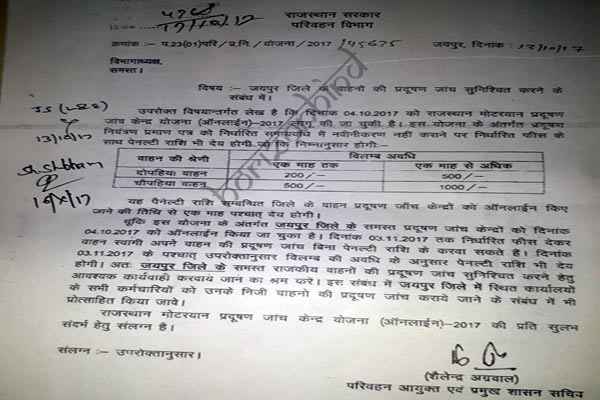 राजस्थान सरकार
परिवहन विभाग
क्रमांक :- प.23(01)परि/प्र.नि./योजना/2017/ जयपुर, दिनांक : 13/10/17
विभागाध्यक्ष,
समस्त।
विषय :- जयपुर जिले के वाहनों की प्रदूषण जांच सुनिश्चित करने के
संबंध में।
उपरोक्त विषयान्तर्गत लेख है कि दिनांक 04.10.2017 को राजस्थान मोटरयान प्रदूषण
जांच केन्द्र योजना (ऑनलाईन)-2017 लागू की जा चुकी है। इस योजना के अंतर्गत प्रदूषण
नियंत्रण प्रमाण पत्र को निर्धारित समयावधि में नवीनीकरण नहीं कराने पर निर्धारित फीस के
साथ पेनल्टी राशि भी देय होगी जो कि निम्नानुसार होगी:-
वाहन की श्रेणी विलम्ब अवधि
एक माह तक एक माह से अधिक
दोपहिया वाहन 200/- 500/-
चौपहिया वाहन 500/- 1000/-
यह पैनल्टी राशि सम्बन्धित जिले के वाहन प्रदूषण जाँच केन्द्रों को ऑनलाईन किए
जाने की तिथि से एक माह पश्चात् देय होगी।
चूंकि इस योजना के अंतर्गत जयपुर जिले के समस्त प्रदूषण जांच केन्द्रों को दिनांक
04.10.2017 को ऑनलाईन किया जा चुका है। दिनांक 03.11.2017 तक निर्धारित फीस देकर
वाहन स्वामी अपने वाहन की प्रदूषण जांच बिना पेनल्टी राशि के करवा सकते हैं। दिनांक
03.11.2017 के पश्चात् उपरोक्तानुसार विलम्ब की अवधि के अनुसार पेनल्टी राशि भी देय
होगी। अतः जयपुर जिले के समस्त राजकीय वाहनों की प्रदूषण जांच सुनिश्चित करने हेतु
आवश्यक कार्यवाही करवाये जाने का श्रम करें। इस संबंध में जयपुर जिले में स्थित कार्यालयों
के सभी कर्मचारियों को उनके निजी वाहनो की प्रदूषण जांच कराये जाने के संबंध में भी
प्रोत्साहित किया जावे।
राजस्थान मोटरयान प्रदूषण जांच केन्द्र योजना (ऑनलाईन)-2017 की प्रति सुलभ
संदर्भ हेतु संलग्न है।
संलग्न :- उपरोक्तानुसार।
(शैलेन्द्र अग्रवाल)
परिवहन आयुक्त एवं प्रमुख शासन सचिव